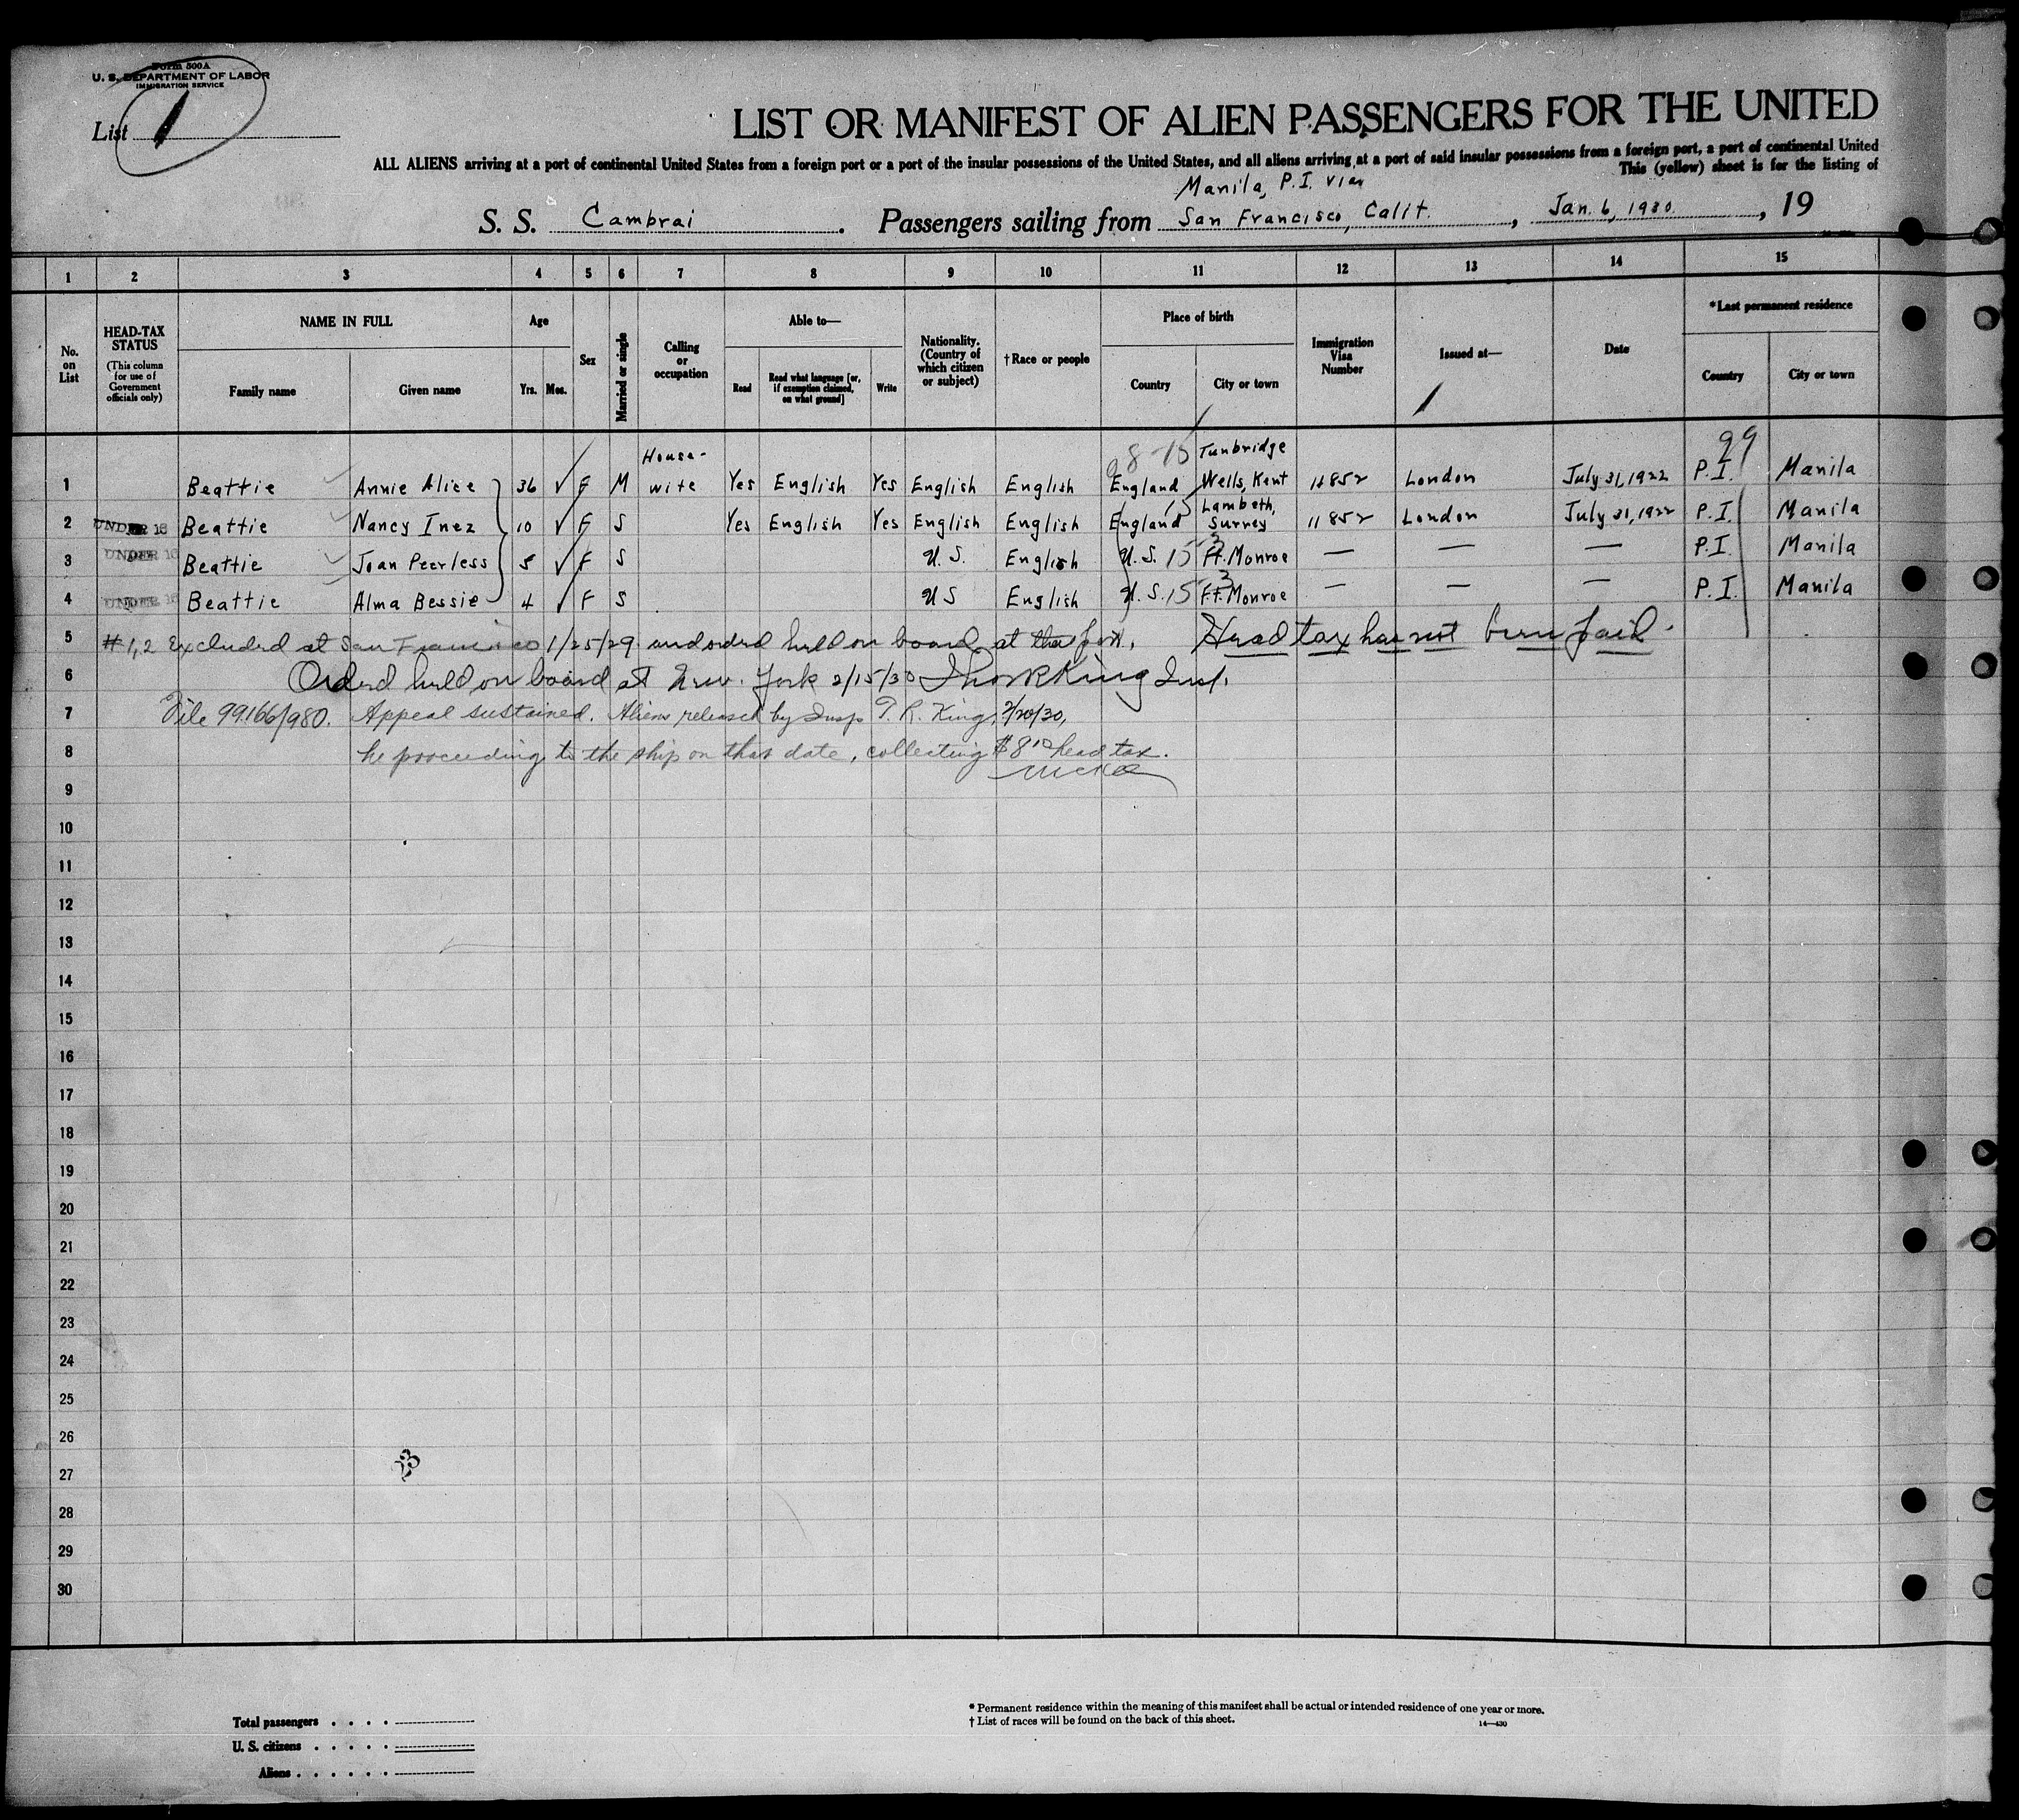 Form 500A
U. S. DEPARTMENT OF LABOR
IMMIGRATION SERVICE
List 1
LIST OR MANIFEST OF ALIEN PASSENGERS FOR THE UNITED
ALL ALIENS arriving at a port of continental United States from a foreign port or a port of the insular possessions of the United States, and all aliens arriving at a port of said insular possessions from a foreign port, a port of continental United
This (yellow) sheet is for the listing of
Manila, P.I. via
S. S. Cambrai. Passengers sailing from San Francisco, Calif., Jan. 6, 1930., 19
1 2 3 4 5 6 7 8 9 10 11 12 13 14 15
No. on List
HEAD-TAX STATUS (This column for use of Government officials only)
NAME IN FULL
Family name Given name
Age
Yrs. Mos.
Sex
Married or single
Calling or occupation
Able to—
Read Read what language [or, if exemption claimed, on what ground] Write
Nationality. (Country of which citizen or subject)
†Race or people
Place of birth
Country City or town
Immigration Visa Number
Issued at—
Date
*Last permanent residence
Country City or town
99
1 Beattie Annie Alice 36 ✓ F M House-wife Yes English Yes English English England Tunbridge Wells, Kent 11852 London July 31, 1922 P.I. Manila
2 UNDER 16 Beattie Nancy Inez 10 ✓ F S Yes English Yes English English England Lambeth, Surrey 11852 London July 31, 1922 P.I. Manila
3 UNDER 16 Beattie Joan Peerless 5 ✓ F S U.S. English U.S. 15 Ft. Monroe — — — P.I. Manila
4 UNDER 16 Beattie Alma Bessie 4 ✓ F S U S English U.S. 15 Ft. Monroe — — — P.I. Manila
5 #1,2 Excluded at San Francisco 1/25/29 and ordrd held on board at that port. Head tax has not been paid.
6 Ordered held on board at New York 2/15/30 Thos R King Insp.
7 File 99166/980. Appeal sustained. Aliens released by Insp T. R. King, 2/20/30,
8 he proceeding to the ship on that date, collecting $8 head tax.
9
10
11
12
13
14
15
16
17
18
19
20
21
22
23
24
25
26
27
28
29
30
23
Total passengers
U. S. citizens
Aliens
* Permanent residence within the meaning of this manifest shall be actual or intended residence of one year or more.
† List of races will be found on the back of this sheet.
14—430